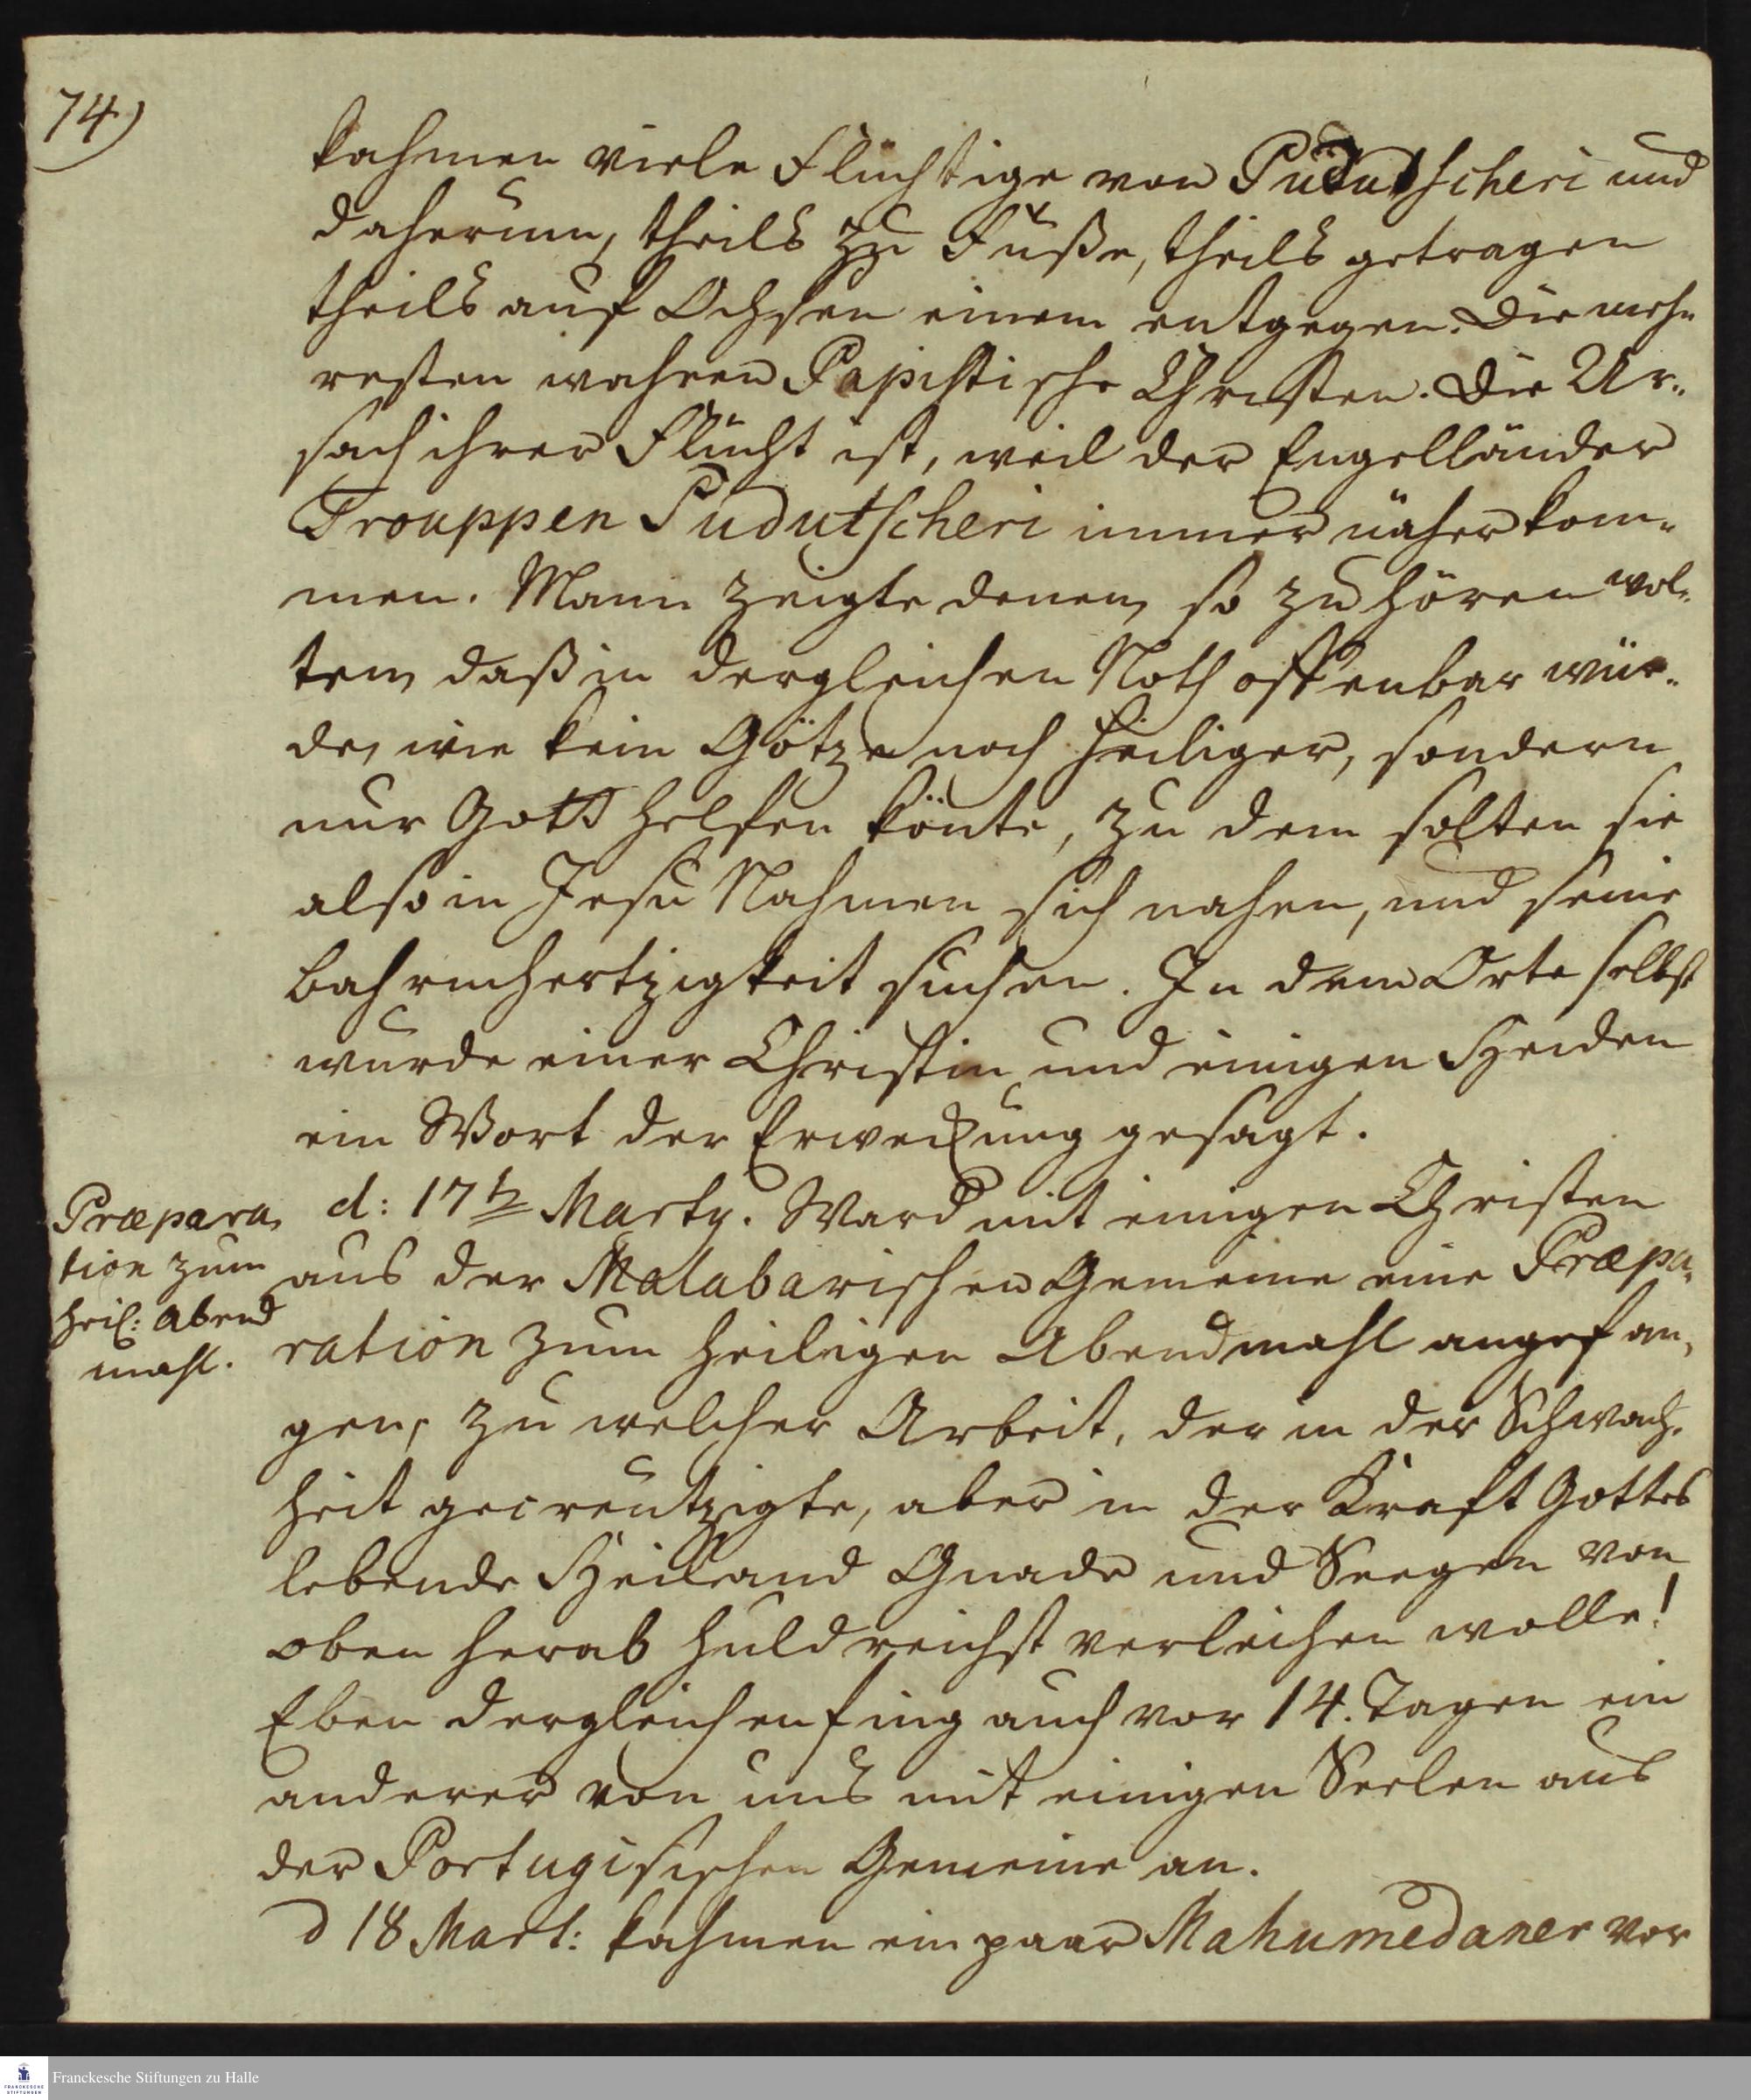 74)
kahmen viele Flüchtige von Pudutscheri und
daherum, theils zu Fuße, theils getragen
theils auf Ochsen einem entgegen. Die meh„
resten wahren Papistische Christen. Die Ur„
sach ihrer Flucht ist, weil der Engelländer
Trouppen Pudutscheri immer näher kom„
men. Mann zeigte denen, so zu hören wol„
ten, daß in dergleichen Noth offenbar wür„
de, wie kein Götze noch Heiliger, sondern
nur Gott helfen könte, zu dem solten sie
also in Jesu Nahmen sich nahen, und seine
Bahrmhertzigkeit suchen. In dem Orte selbst
wurde einer Christin und einigen Heiden
ein Wort der Erweckung gesagt.
Præpara„
tion zum
heil: Abend
mahl.
d: 17t Marty. Ward mit einigen Christen
aus der Malabarischen Gemeine eine Præpa„
ration zum heiligen Abendmahl angefan„
gen, zu welcher Arbeit, der in der Schwach„
heit gecreutzigte, aber in der Kraft Gottes
lebende Heiland Gnade und Seegen von
oben herab huldreichst verleihen wolle!
Eben dergleichen fing auch vor 14. Tagen ein
anderer von uns mit einigen Seelen aus
der Portugisischen Gemeine an.
d 18 Mart: kahmen ein paar Mahumedaner vor
Franckesche Stiftungen zu Halle
FRANCKESCHE
STIFTUNGEN